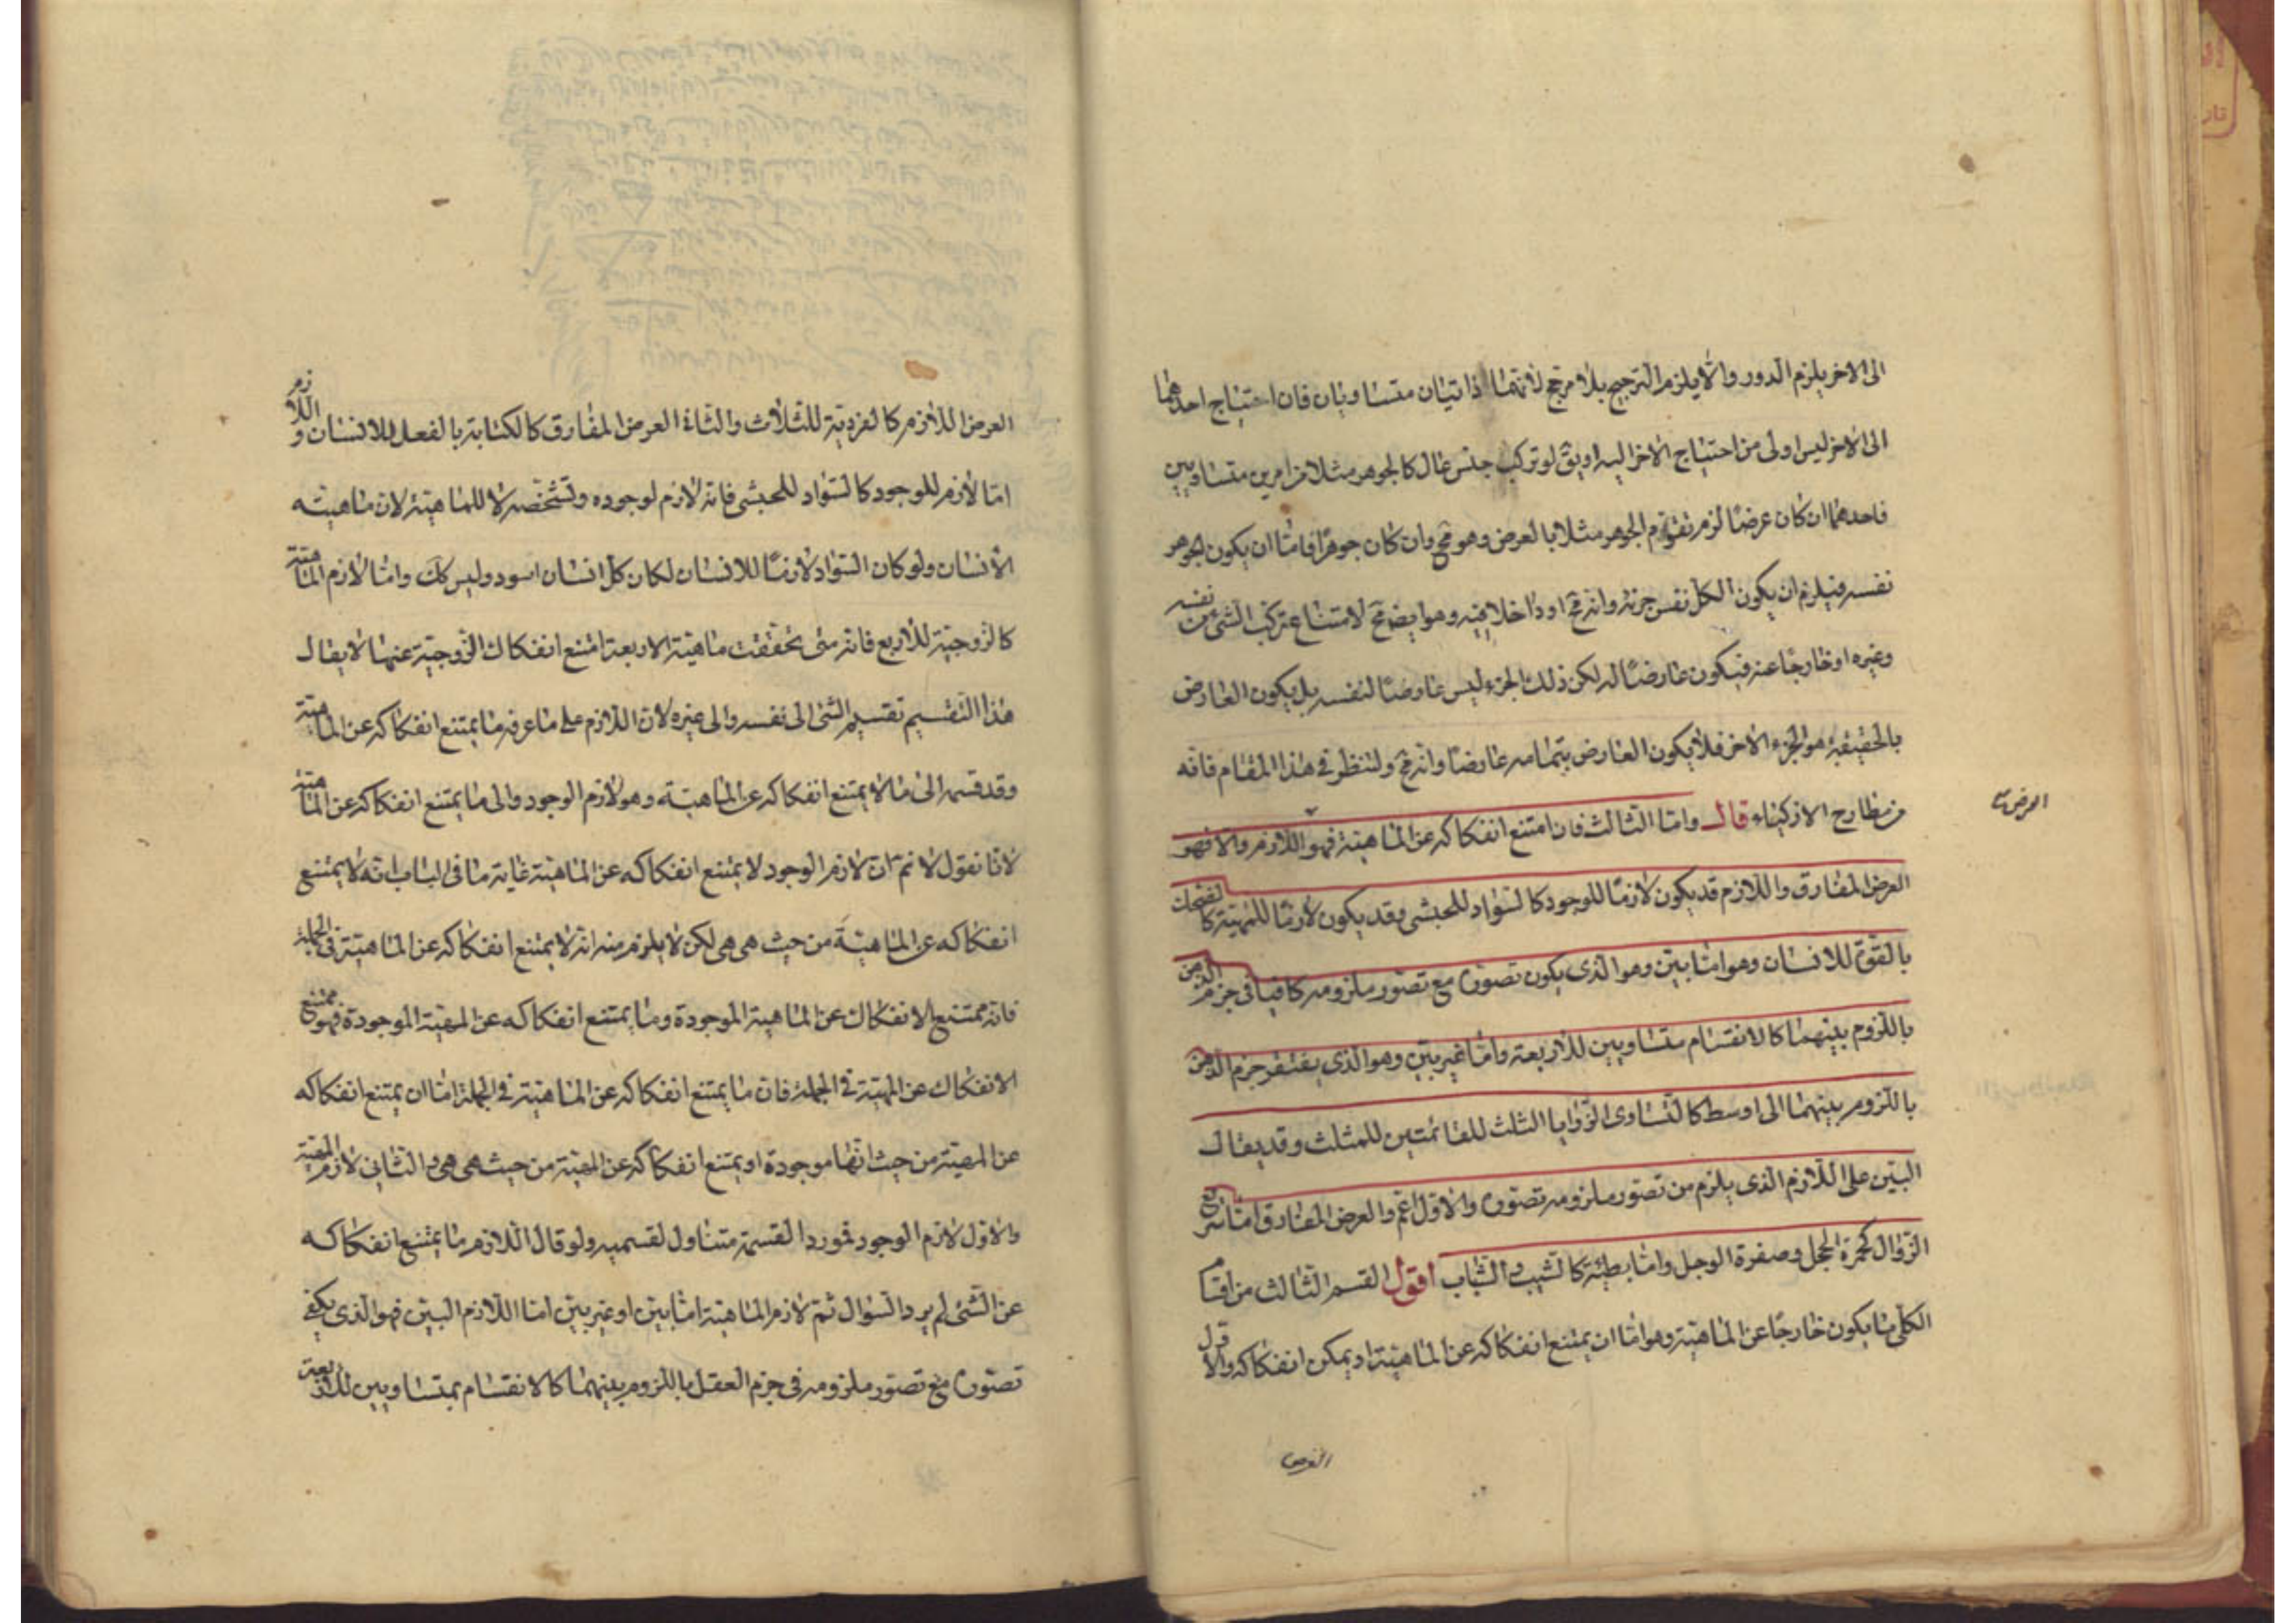 الى الاخر يلزم الدور والا يلزم الترجيح بلا مرجح لانهما ذاتيان متساويان فان احتياج احدهما
الى الاخر ليس اولى من احتياج الاخر اليه او يق لو تركب جنس عال كالجوهر مثلا من امرين متساويين
فاحدهما ان كان عرضًا لزم تقوّم الجوهر مثلا بالعرض وهو مح وان كان جوهرًا فاما ان يكون الجوهر
نفسه فيلزم ان يكون الكل نفس جزئه وانه مح او داخلا فيه وهو ايض مح لامتناع تركب الشئ من نفسه
وغيره او خارجًا عنه فيكون عارضًا له لكن ذلك الجزء ليس عارضًا لنفسه بل يكون العارض
بالحقيقة هو الجزء الاخر فلا يكون العارض بتمامه عارضا وانه مح ولننظر فى هذا المقام فانه
من مطارح الازكياء قال واما الثالث فان امتنع انفكاكه عن الماهية فهو اللازم والا فهو
العرض المفارق واللازم قد يكون لازمًا للوجود كالسواد للحبشى وقد يكون لازمًا للمهيّة كالضحك
بالقوة للانسان وهو اما بيّن وهو الذى يكون تصوره مع تصور ملزومه كافيا فى جزم الذهن
باللزوم بينهما كالانقسام متساويين للاربعة واما غير بيّن وهو الذى يفتقر جزم الذهن
باللزوم بينهما الى اوسط كالتساوى الزوايا الثلث للقائمتين للمثلث وقد يقال
البيّن على اللازم الذى يلزم من تصور ملزومه تصوره والاول اعم والعرض المفارق اما سريع
الزوال كحمرة الخجل وصفرة الوجل واما بطيئة كالشيب والشباب اقول القسم الثالث من اقسام
الكلى ما يكون خارجًا عن الماهية وهو اما ان يمتنع انفكاكه عن الماهية او يمكن انفكاكه والاول
العرض
العرض
العرض اللازم كالفردية للثلاث والثانى العرض المفارق كالكتابة بالفعل للانسان واللازم
اما لازم للوجود كالسواد للحبشى فانه لازم لوجوده وتشخصه لا للماهية لان ماهيته
الانسان ولو كان السواد لازمًا للانسان لكان كل انسان اسود وليس كك واما لازم الماهية
كالزوجية للاربع فانه متى تحققت ماهية الاربعة امتنع انفكاك الزوجية عنها لا يقال
هذا التقسيم تقسيم الشئ الى نفسه والى غيره لان اللازم على ما عرفه ما يمتنع انفكاكه عن الماهية
وقد قسمه الى ما لا يمتنع انفكاكه عن الماهية وهو لازم الوجود والى ما يمتنع انفكاكه عن الماهية
لانا نقول لا نم ان لازم الوجود لا يمتنع انفكاكه عن الماهية غاية ما فى الباب انه لا يمتنع
انفكاكه عن الماهية من حيث هى هى لكن لا يلزم منه انه لا يمتنع انفكاكه عن الماهية فى الجملة
فانه ممتنع الانفكاك عن الماهية الموجودة وما يمتنع انفكاكه عن المهية الموجودة فهو ممتنع
الانفكاك عن المهيّة فى الجملة فان ما يمتنع انفكاكه عن الماهية فى الجملة اما ان يمتنع انفكاكه
عن المهية من حيث انها موجودة او يمتنع انفكاكه عن المهية من حيث هى هى والثانى لازم المهية
والاول لازم الوجود فمورد القسمة متناول لقسميه ولو قال اللازم ما يمتنع انفكاكه
عن الشئ لم يرد السؤال ثم لازم الماهية اما بيّن او غير بيّن اما اللازم البيّن فهو الذى يكفى
تصوره مع تصور ملزومه فى جزم العقل باللزوم بينهما كالانقسام بمتساويين للاربعة